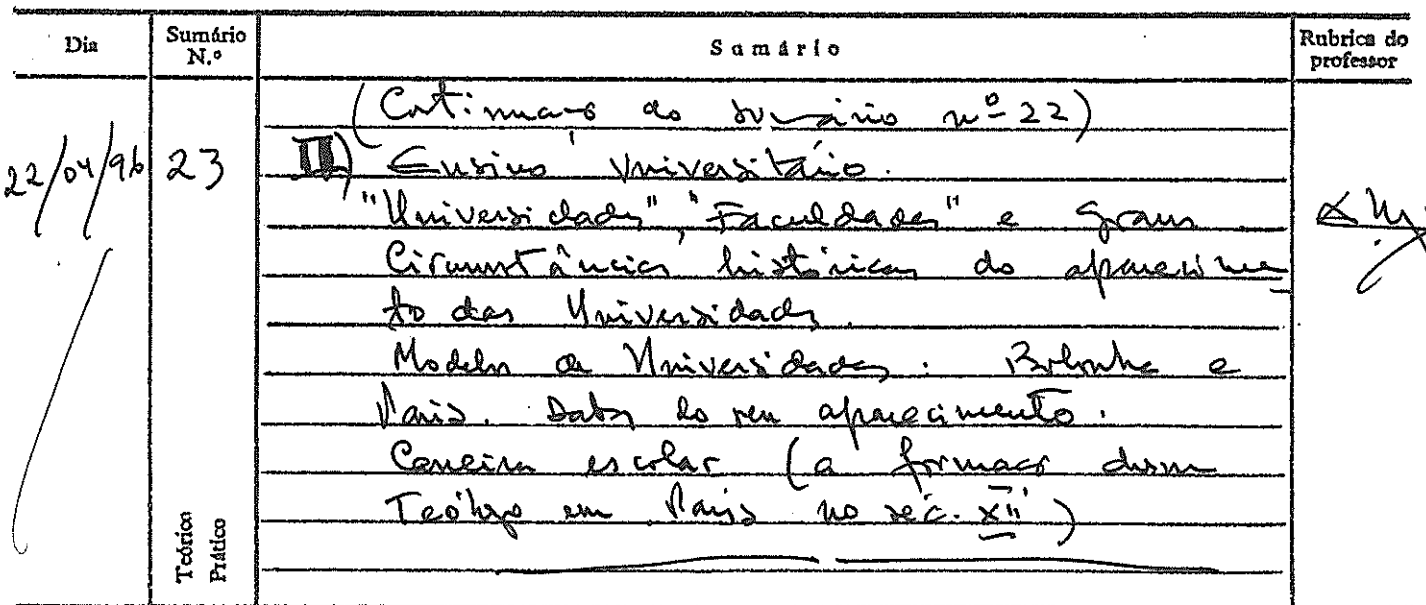 Dia
Sumário N.º
Sumário
Rubrica do professor
22/04/96
23
Teórico
Prático
(Continuação do sumário nº 22)
II) Ensino Universitário.
"Universidades", "Faculdades" e graus
Circunstâncias históricas do aparecimen
to das Universidades.
Modelos de Universidades: Bolonha e
Paris. Datas do seu aparecimento.
Carreira escolar (a formação dum
Teólogo em Paris no séc. XII)